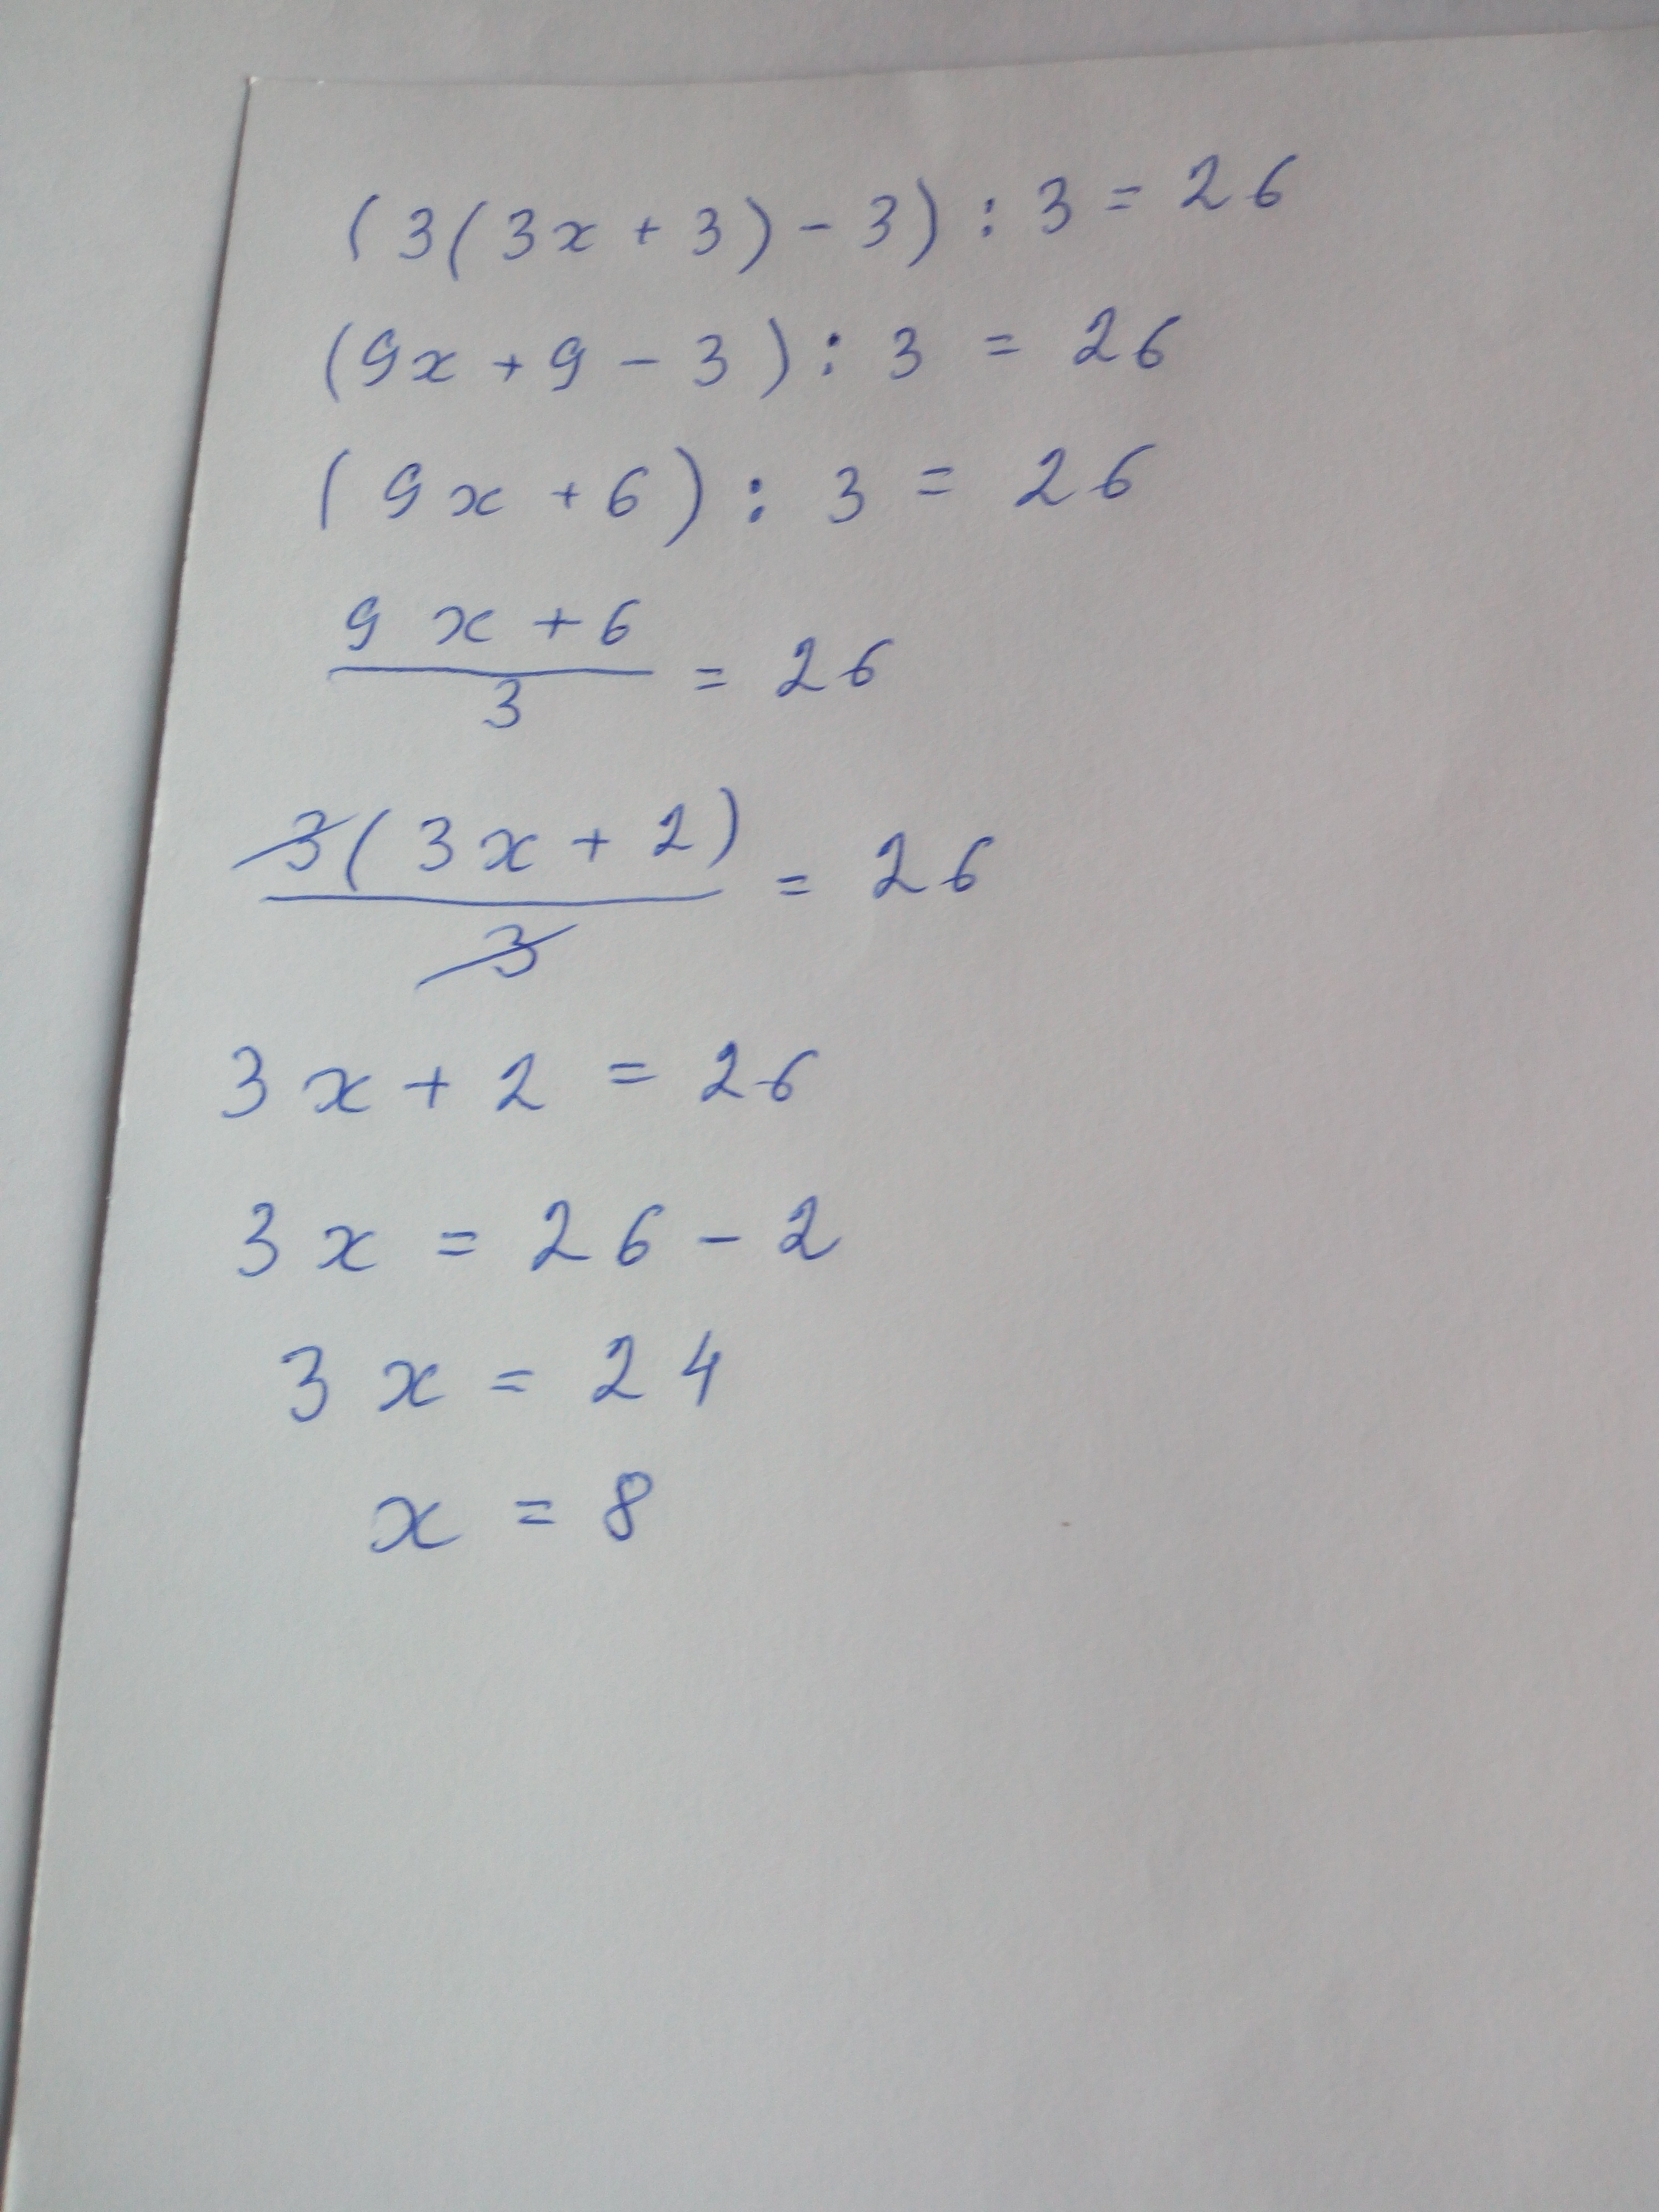 (3(3x+3)-3):3=26
(9x+9-3):3=26
(9x+6):3=26
9x+6
3
=26
3(3x+2)
3
=26
3x+2=26
3x=26-2
3x=24
x=8